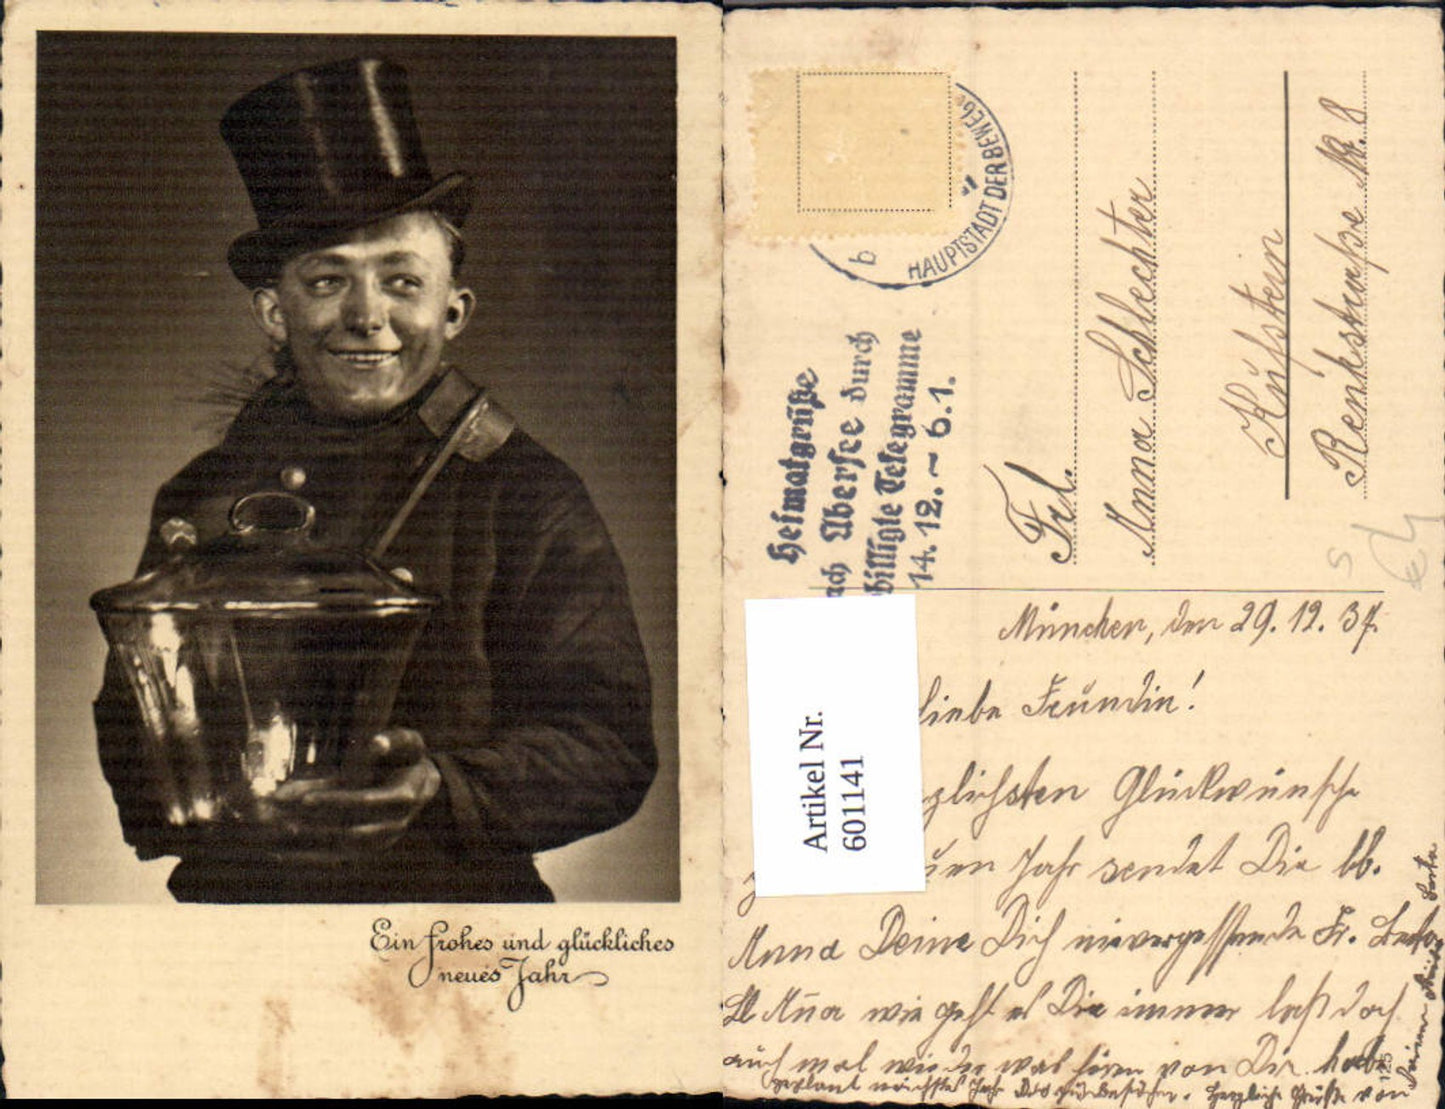 Ein frohes und glückliches
neues Jahr
HAUPTSTADT DER BEWEG
b
Heimatgrüße
ach Übersee durch
billigte Telegramme
14. 12. ~ 6. 1.
Frl.
Anna Schlechter
Kufstein
Renkstraße Nr. 8
München, den 29. 12. 37.
liebe Freundin!
zlichsten Glückwünsche
uen Jahr sendet Dir lb.
Anna Deine Dich nievergessende Fr.
wie geht es Dir immer laß doch
auch mal wieder was hören von Dir. habe
nächstes Jahr besuchen. Herzliche Grüße von
125
Artikel Nr.
601141